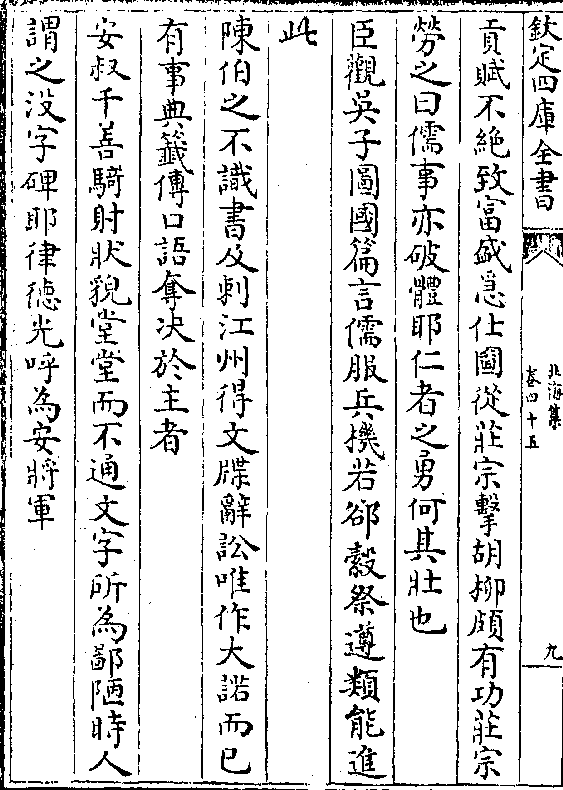 欽定四庫全書
北海集
卷四十五
九
貢賦不絶致富盛憑仕國從莊宗擊胡柳頗有功莊宗
勞之曰儒事亦破體耶仁者之勇何其壯也
臣觀吳子圖國篇言儒服兵機若郤縠祭遵類能進
此
陳伯之不識書及刺江州得文牒辭訟唯作大諾而已
有事典籤傳口語奪決於主者
安叔千善騎射狀貌堂堂而不通文字所為鄙陋時人
謂之没字碑耶律德光呼為安將軍